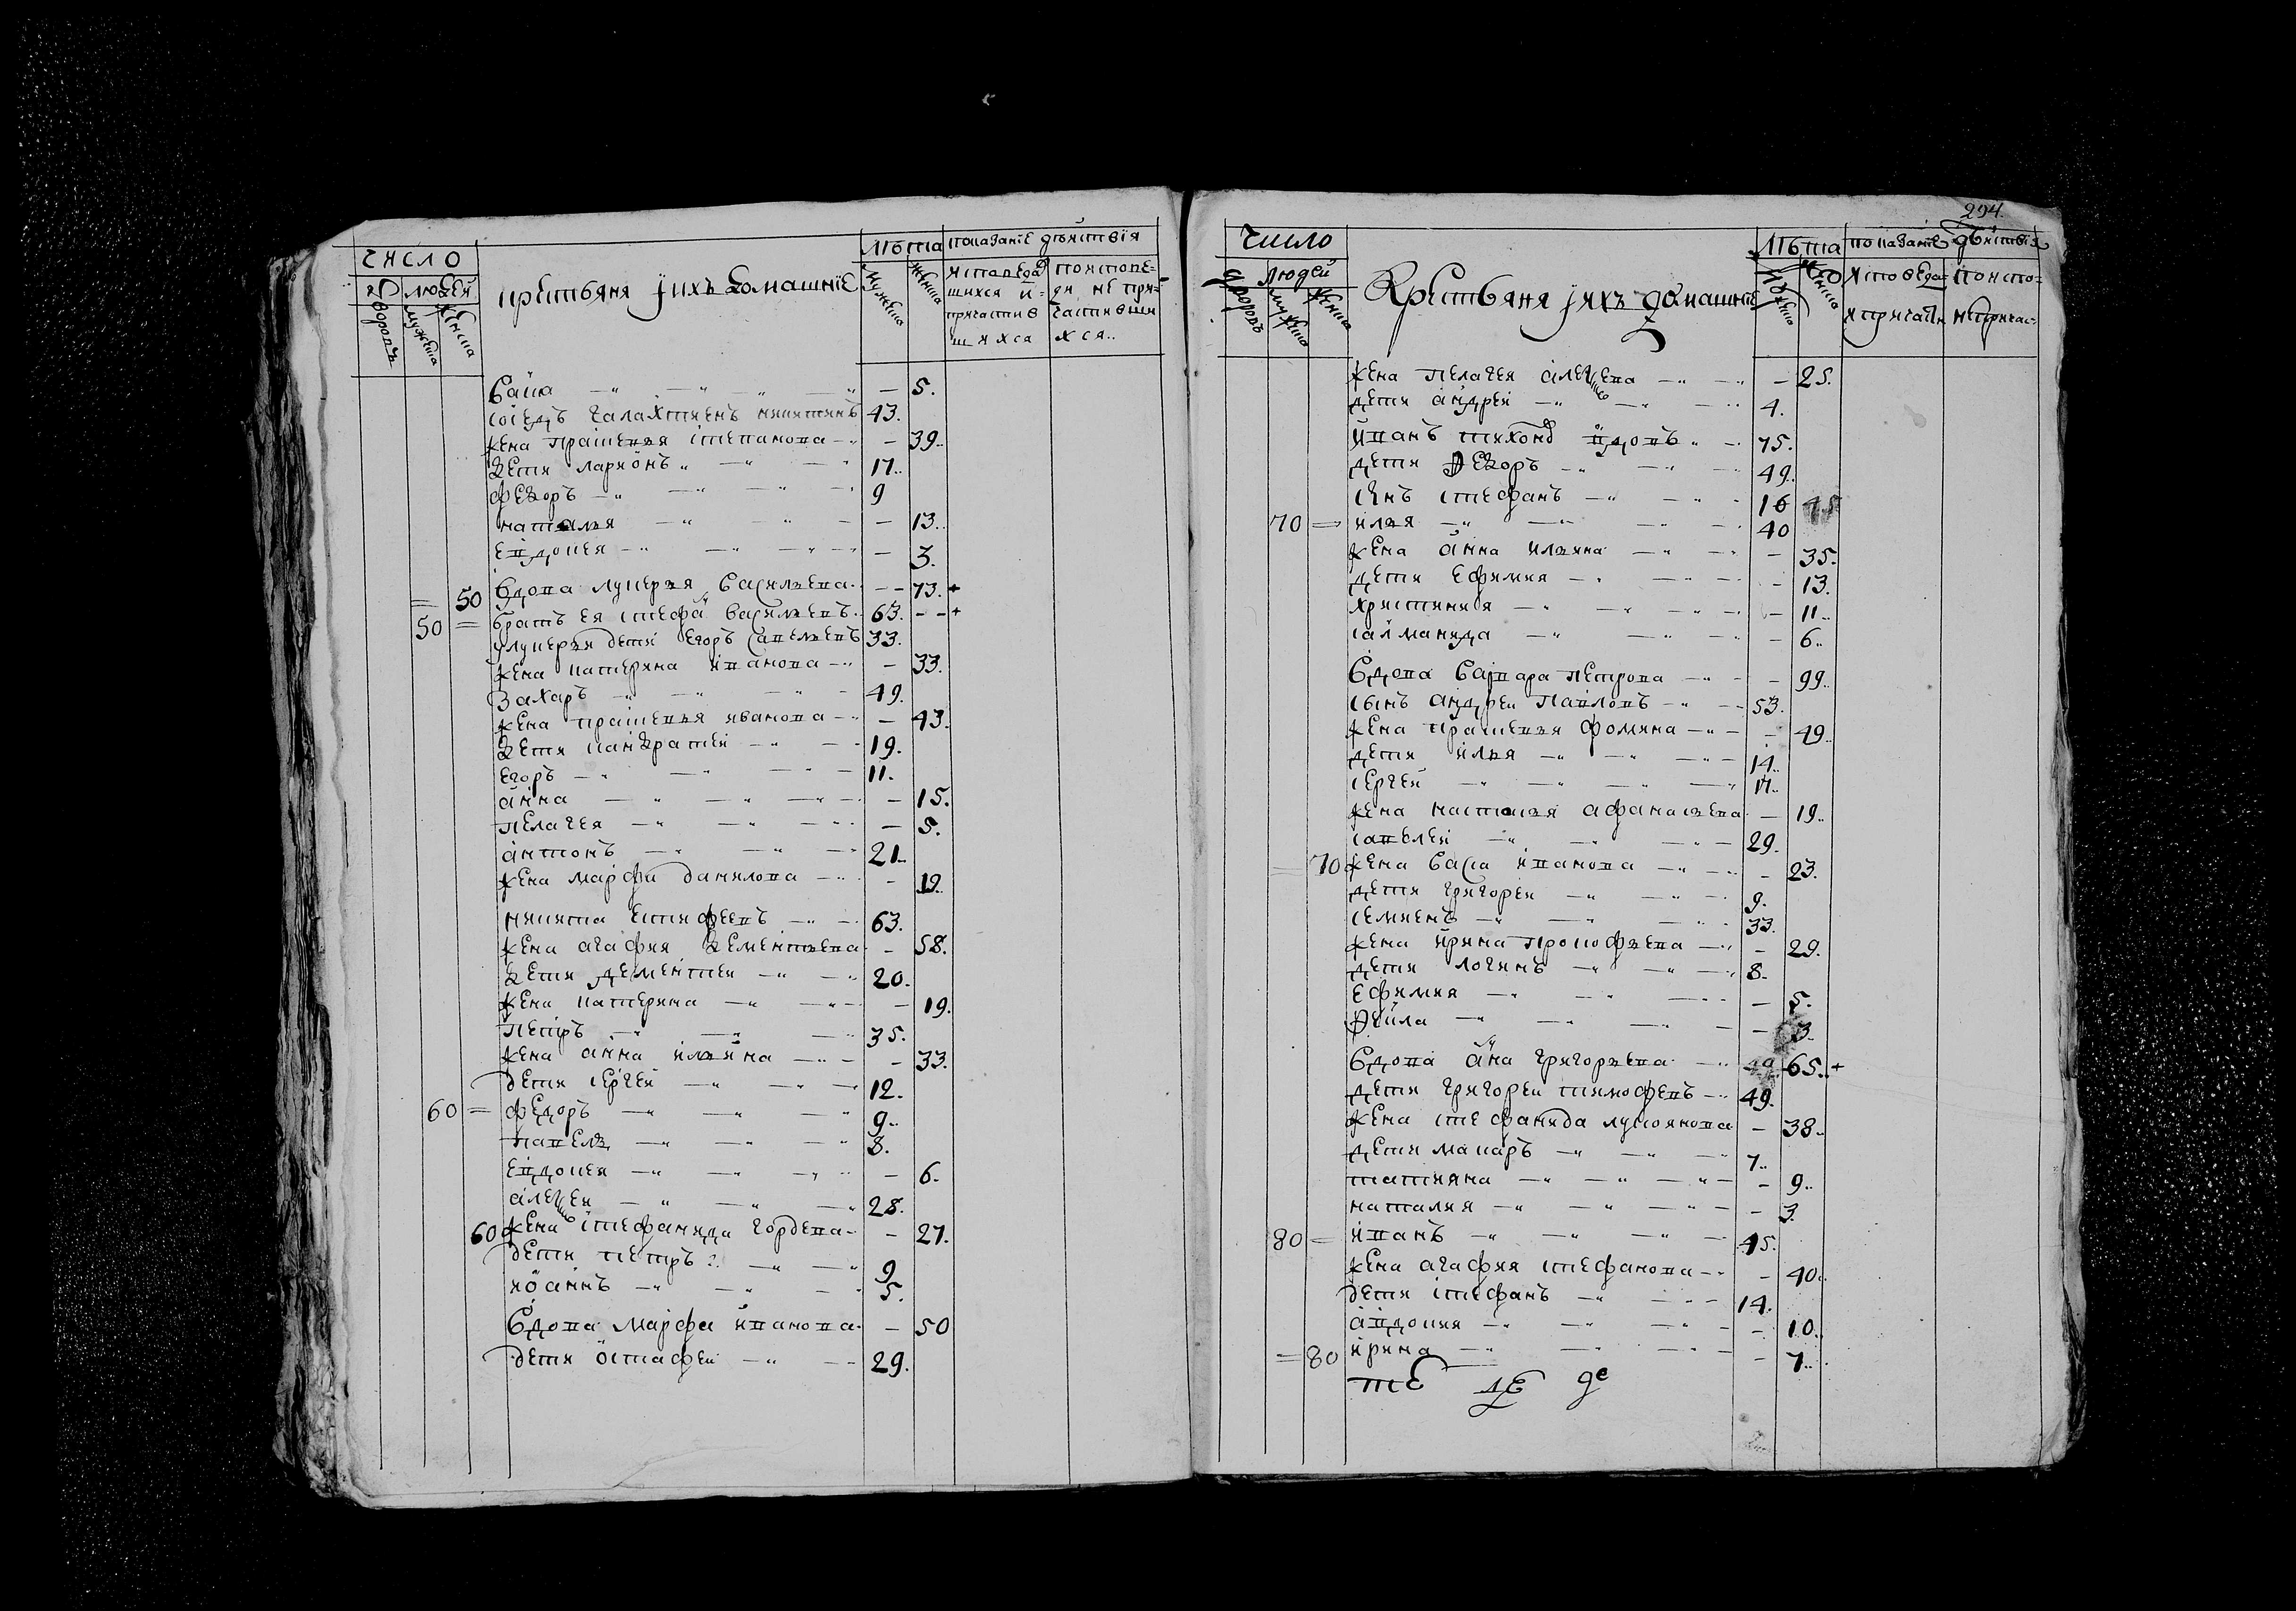 число
лѣта показанїе дѣйствїя
дворовъ
людей
мужеска
женска
крестьяня ѝ ихъ домашнїе
мужеска
женска
исповеда
шихся и
причастив
шихся
по исповѣ-
ди не при-
частивши
хся..
васса — 5.
соседъ галахтиенъ никитинъ 43.
жена прасковья степанова — 39..
дети ларионъ 17..
федоръ 9
наталья — 13..
евдокея — 3.
50 вдова лукерья васильева — 73. +
50 = братъ ея стефа васильевъ 63. — +
у лукерьи дети егоръ савельевъ 33.
жена катерина иванова — 33.
захаръ 49.
жена прасковья иванова — 43.
дети панкратеи 19.
егоръ 11.
анна — 15.
пелагея — 5.
антонъ 21..
жена марфа данилова — 19.
никита естифеевъ 63.
жена агафия дементьева — 58.
дети дементеи 20.
жена катерина — 19.
петръ 35.
жена анна ильина — 33.
дети сергеи 12.
60 = федоръ 9..
павелъ 8.
евдокея — 6.
алексеи 28.
60 жена стефанида гордева — 27.
дети петръ 9
иоаннъ 5.
вдова марфа иванова — 50
дети остафеи 29.
294.
число
лѣта показанїе дѣйствїя
дворовъ
людей
мужеска
женска
крестьяня ѝ ихъ домашнїе
мужеска
женска
исповеда-
и причасти
по испо-
не причас-
жена пелагея алексеева — 25.
дети андреи 4.
иванъ тихоно вдовъ 75.
дети федоръ 49.
сынъ стефанъ 16
70 = илья 40
жена анна ильина — 35.
дети ефимия — 13.
христиния — 11..
саламанида — 6..
вдова варвара петрова — 99..
сынъ андреи павловъ 53.
жена прасковья фомина — 49..
дети илья 14..
сергеи 17..
жена наталья афанасьева — 19..
савелеи 29.
70 жена васса иванова — 23.
дети григореи 9.
семиенъ 33.
жена ирина прокофьева — 29.
дети логинъ 8.
ефимия — 5.
фекла — 3.
вдова ана григорьева — 65. +
дети григореи тимофеевъ 49.
жена стефанида лукоянова — 38..
дети макаръ 7..
татияна — 9..
наталия — 3.
80 = иванъ 45.
жена агафия стефанова — 40..
дети стефанъ 14.
авдокия — 10..
= 80 ирина — 7..